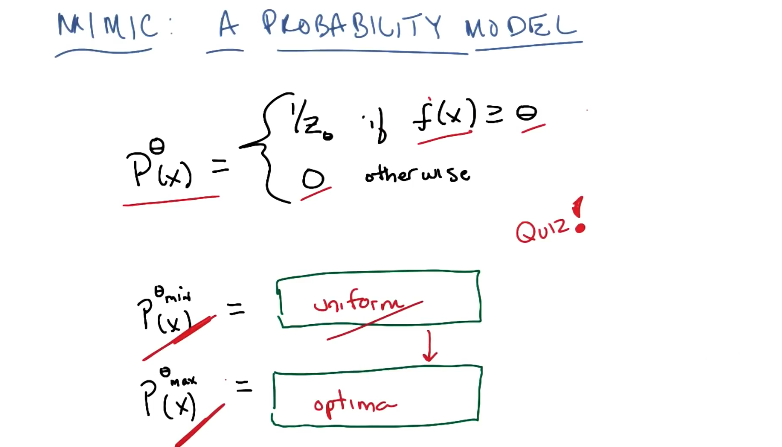 MIMIC: A PROBABILITY MODEL
P^θ(x) = { 1/z_θ if f(x) ≥ θ
0 otherwise
Quiz!
P^θmin(x) = uniform
P^θmax(x) = optima